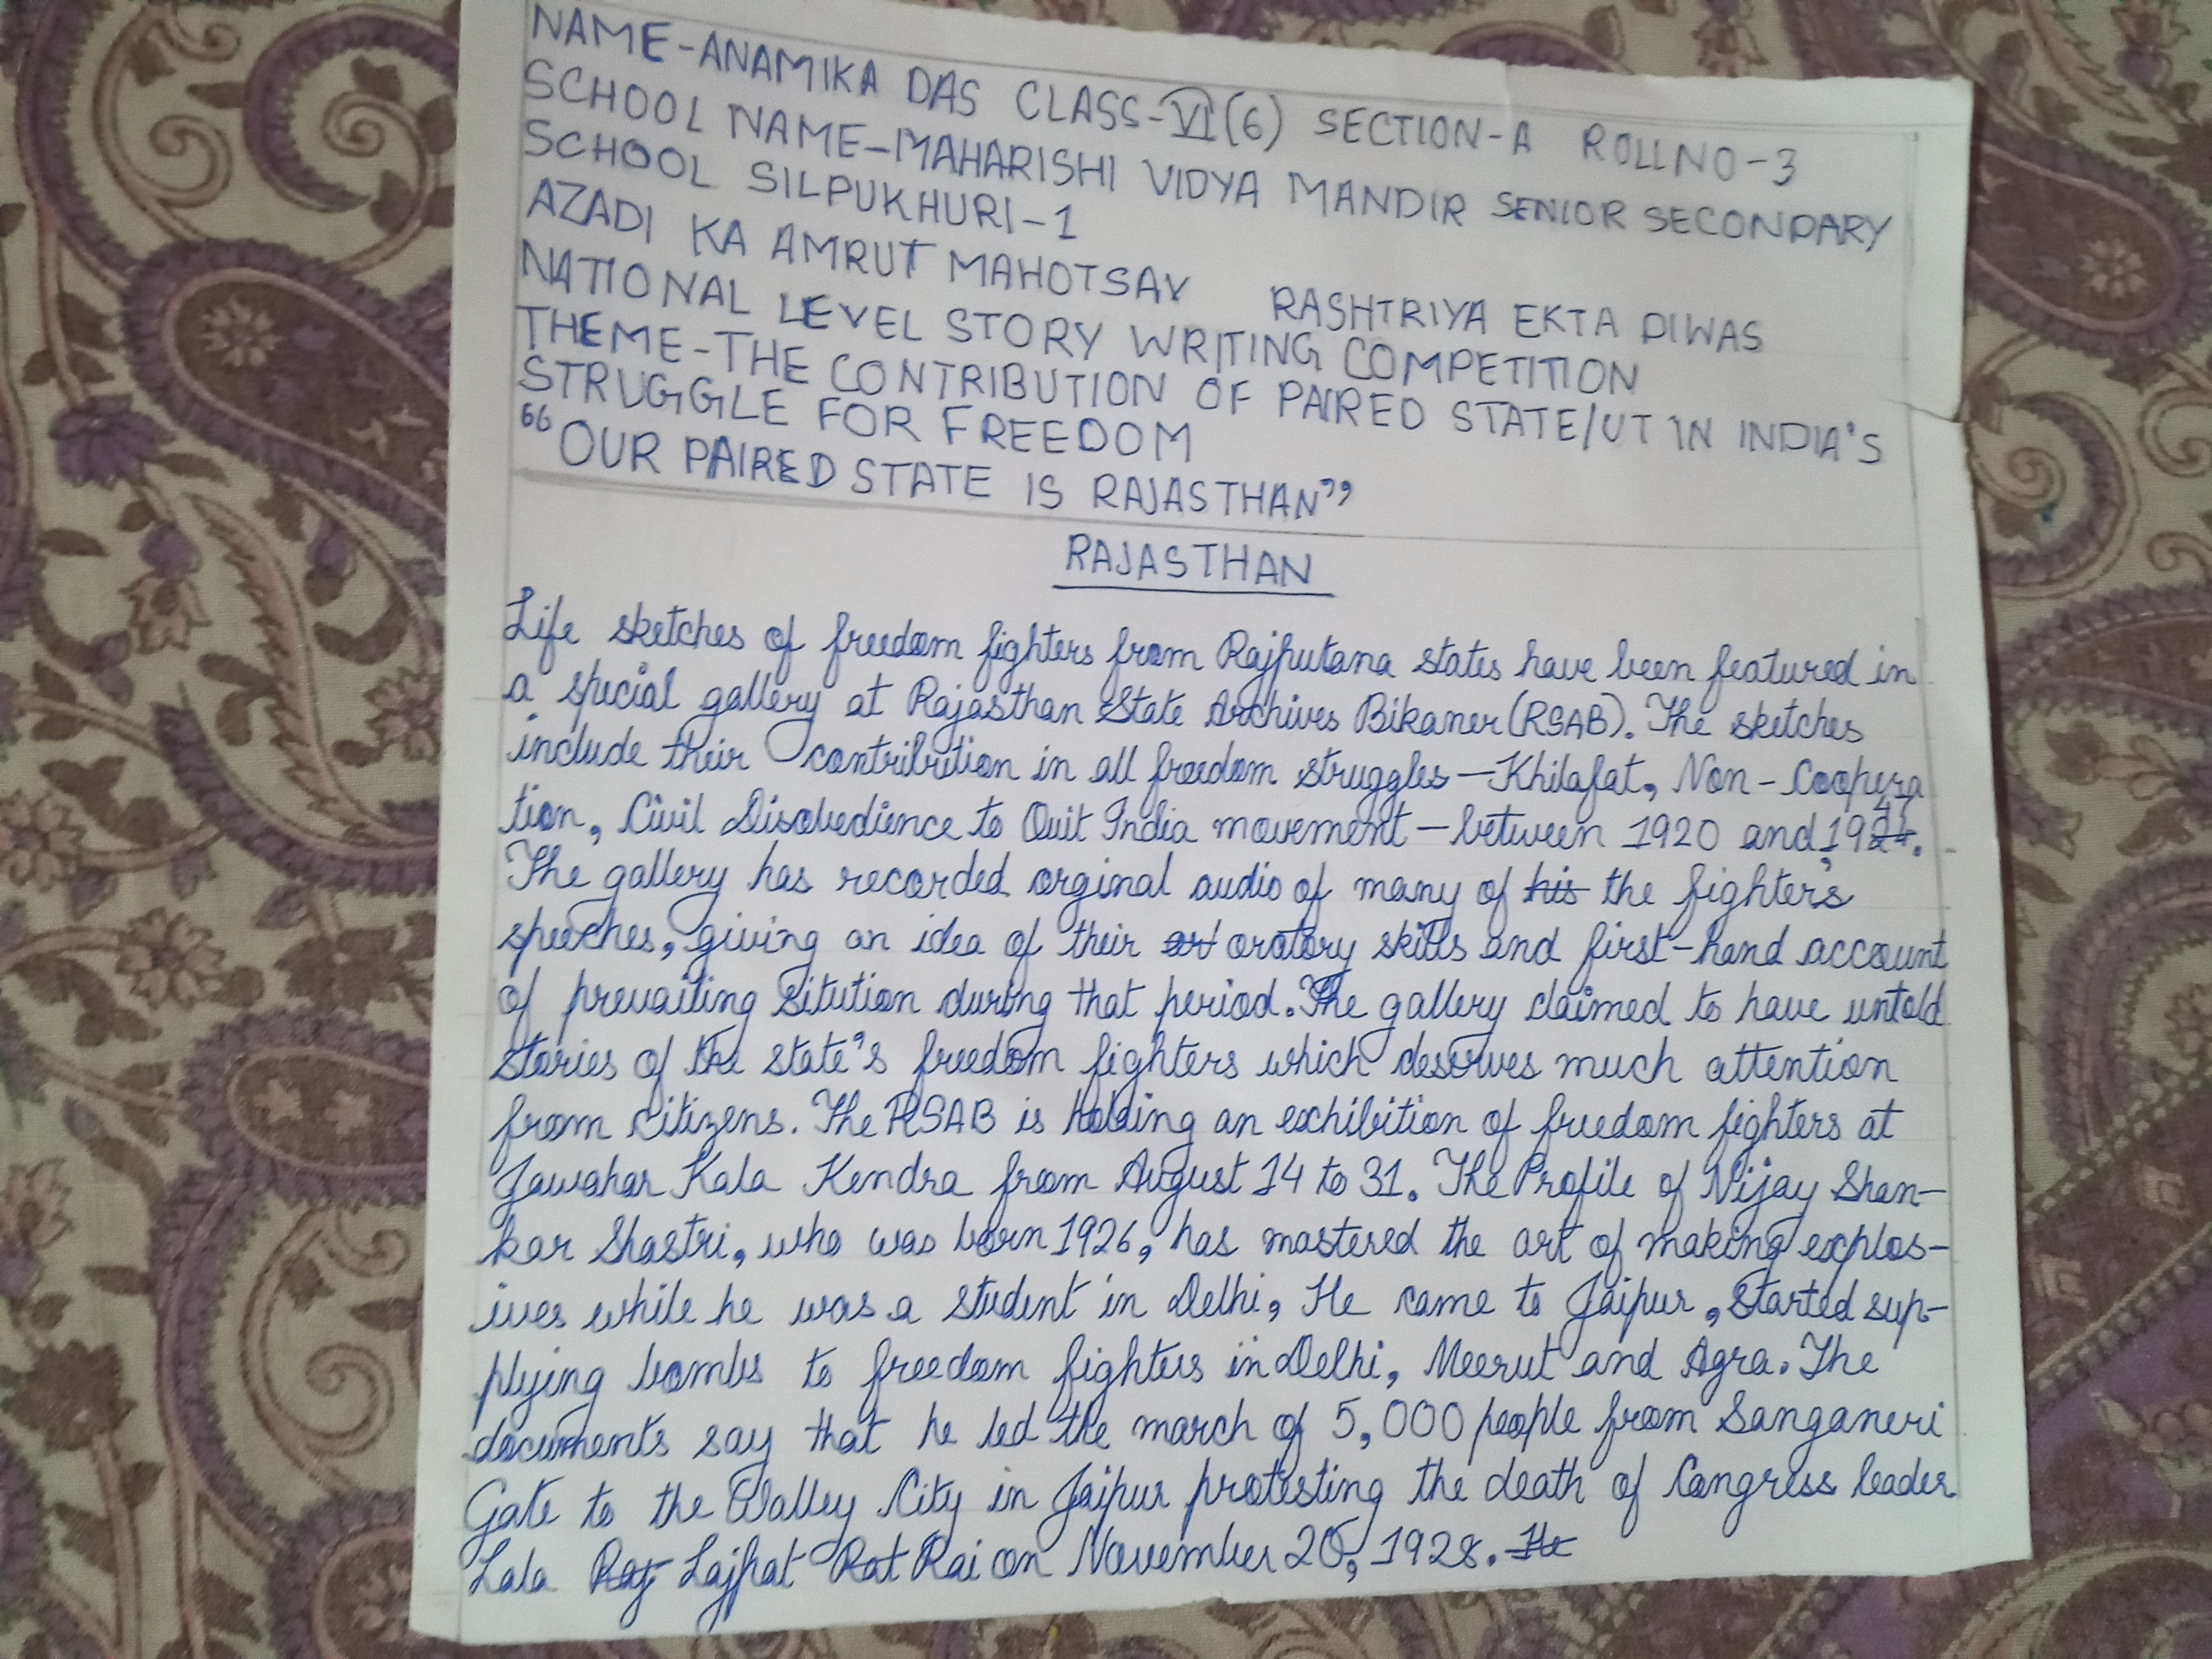 NAME-ANAMIKA DAS CLASS-VI(6) SECTION-A ROLL NO-3
SCHOOL NAME-MAHARISHI VIDYA MANDIR SENIOR SECONDARY
SCHOOL SILPUKHURI-1
AZADI KA AMRUT MAHOTSAV RASHTRIYA EKTA DIWAS
NATIONAL LEVEL STORY WRITING COMPETITION
THEME-THE CONTRIBUTION OF PAIRED STATE/UT IN INDIA'S
STRUGGLE FOR FREEDOM
"OUR PAIRED STATE IS RAJASTHAN"
RAJASTHAN
Life sketches of freedom fighters from Rajputana states have been featured in
a special gallery at Rajasthan State Archives Bikaner (RSAB). The sketches
include their contribution in all freedom struggles—Khilafat, Non-Coopera
tion, Civil Disobedience to Quit India movement—between 1920 and 1947.
The gallery has recorded orginal audio of many of his the fighter's
speeches, giving an idea of their oratory skills and first-hand account
of prevailing sitution during that period. The gallery claimed to have untold
stories of the state's freedom fighters which deserves much attention
from citizens. The RSAB is holding an exhibition of freedom fighters at
Jawahar Kala Kendra from August 14 to 31. The Profile of Vijay Shan-
kar Shastri, who was born 1926, has mastered the art of making explos-
ives while he was a student in Delhi, He came to Jaipur, started sup-
plying bombs to freedom fighters in Delhi, Meerut and Agra. The
documents say that he led the march of 5,000 people from Sanganeri
Gate to the Walley City in Jaipur protesting the death of Congress leader
Lala Raj Lajpat Rat Rai on November 20, 1928. He